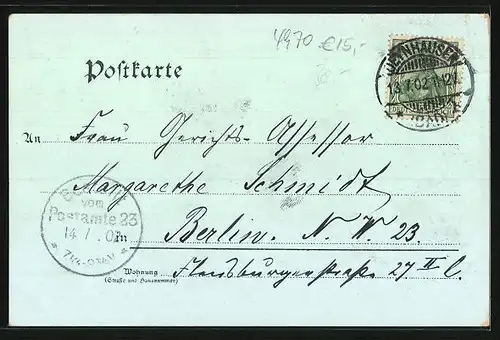 4970 €15,-
Postkarte
13.7.02
An Frau Gerichts-Assessor
Margarethe Schmidt
vom
Postamte 23
14/7.02
in Berlin. N.W. 23.
Wohnung Flensburgerstraße 27 II l.
(Straße und Hausnummer)